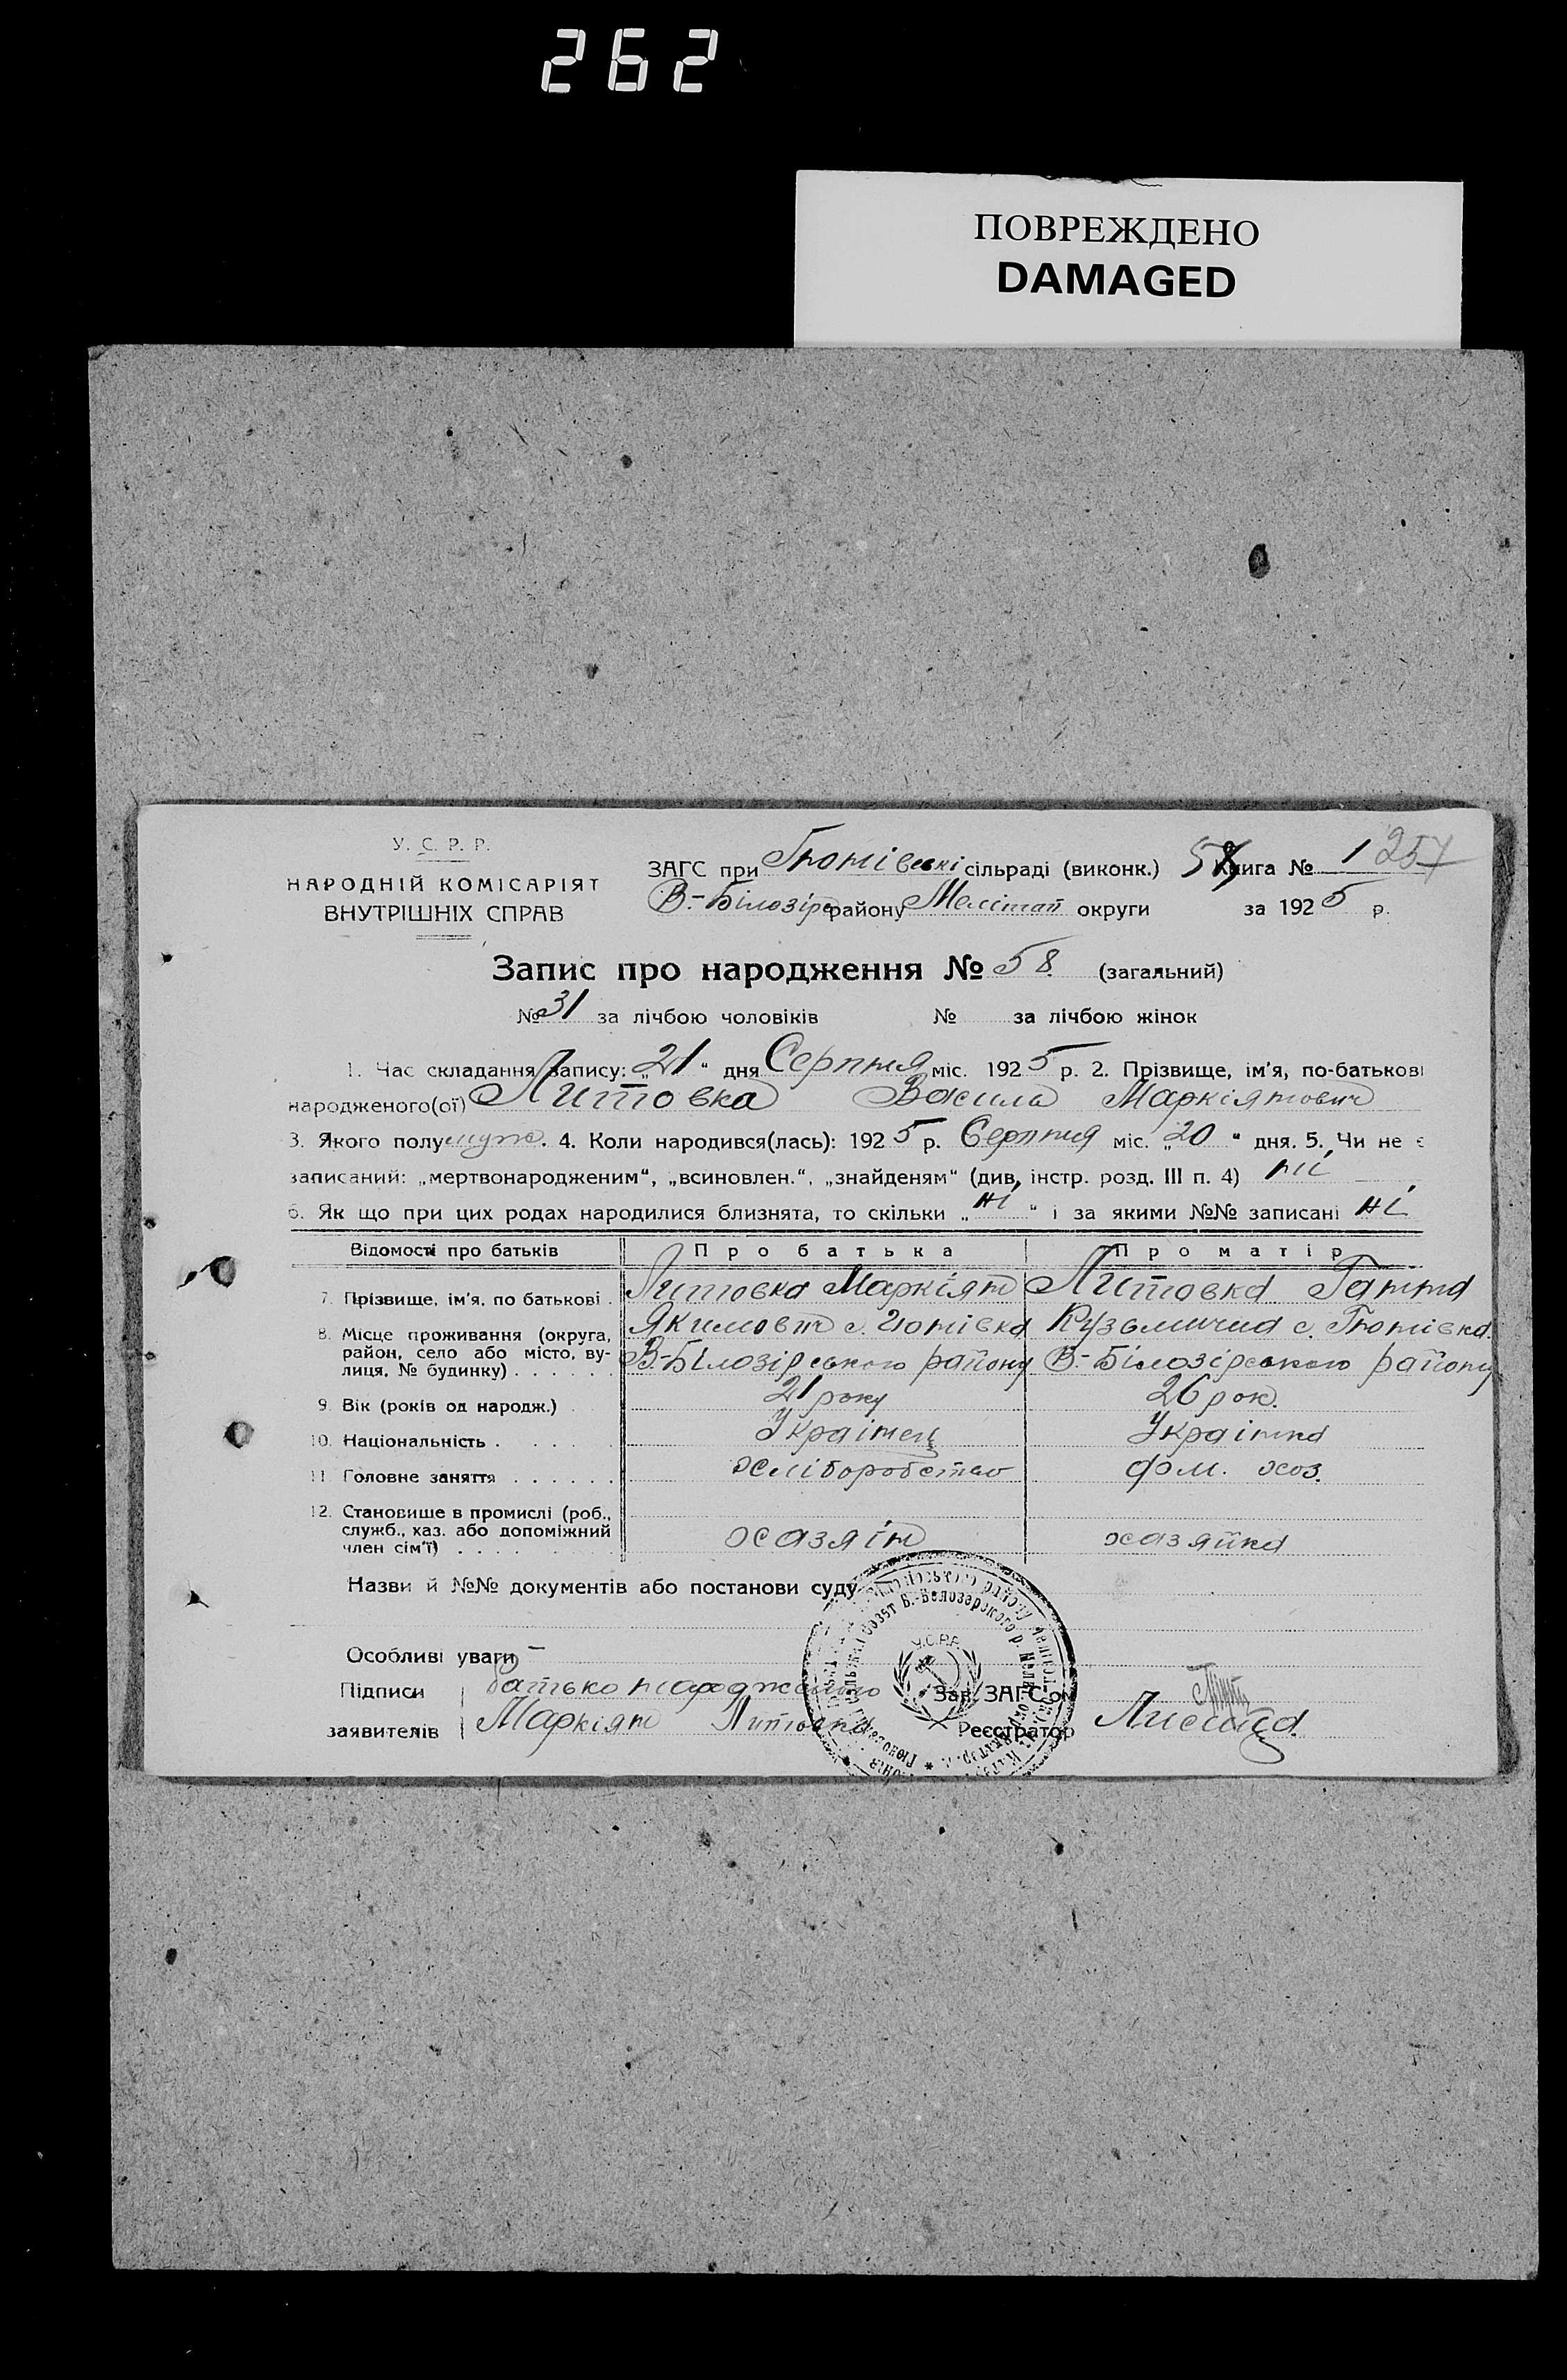 262
ПОВРЕЖДЕНО
DAMAGED
У. С. Р. Р.
НАРОДНІЙ КОМІСАРІЯТ
ВНУТРІШНІХ СПРАВ
ЗАГС при Гюнівські сільраді (виконк.) 58 Книга № 1 257
В.-Білозірс району Меліт округи за 1925 р.
Запис про народження № 58 (загальний)
№ 31 за лічбою чоловіків № за лічбою жінок
1. Час складання запису: „21" дня Серпня міс. 1925 р. 2. Прізвище, ім'я, по-батькові
народженого(ої) Литовка Василь Маркіянович
3. Якого полу муж. 4. Коли народився(лась): 1925 р. Серпня міс. „20" дня. 5. Чи не є
записаний: „мертвонародженим", „всиновлен.", „знайденям" (див. інстр. розд. III п. 4) ні
6. Як що при цих родах народилися близнята, то скільки „ні" і за якими №№ записані ні
Відомості про батьків Про батька Про матір
7. Прізвище, ім'я, по батькові . Литовка Маркіян Литовка Ганна
8. Місце проживання (округа, Якимович с. Гюнівка Кузьмична с. Гюнівка.
район, село або місто, ву- В.-Білозірського району В.-Білозірського району
лиця, № будинку) . . . . . .
9. Вік (років од народж.) 21 року 26 рок.
10. Національність . . . . . Українец Українка
11. Головне заняття . . . . . . хліборобство дом. хоз.
12. Становище в промислі (роб.,
служб., хаз. або допоміжний хазяїн хазяйка
член сім'ї) . . . .
Назви й №№ документів або постанови суду
У.С.Р.Р.
Особливі уваги —
Підписи батько народженого Зав. ЗАГС'ом
заявителів Маркіян Литовка Реєстратор